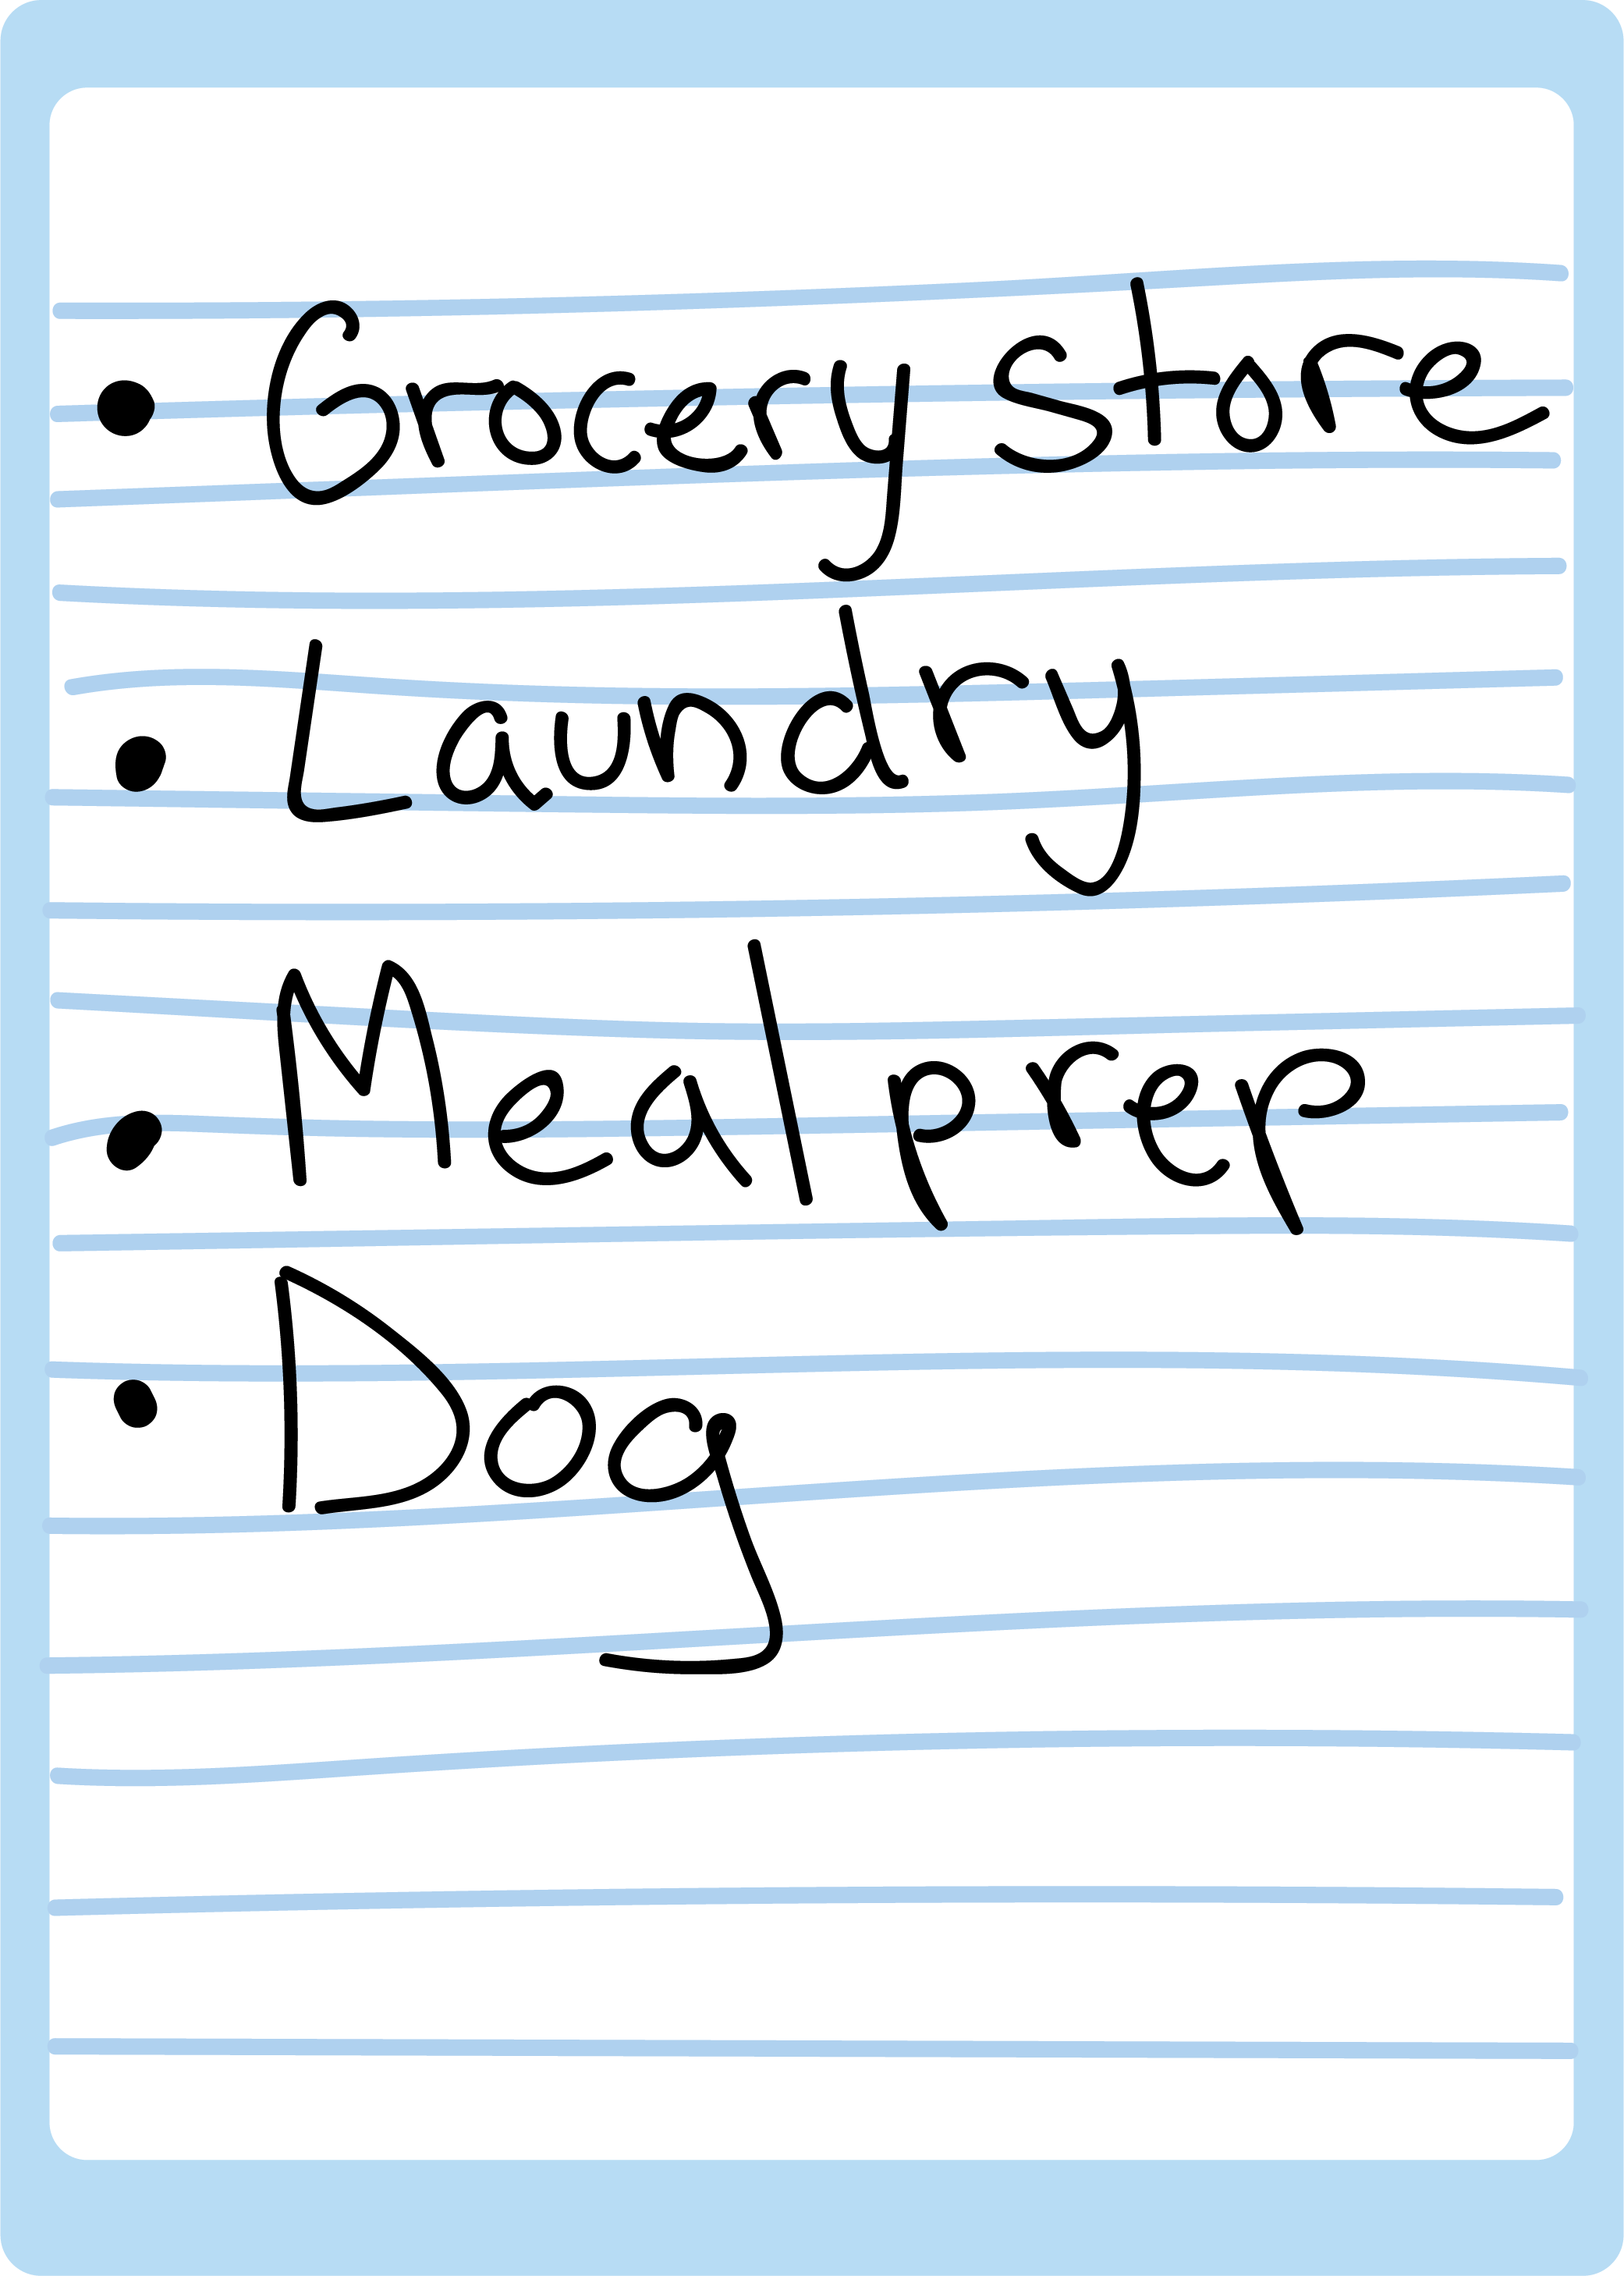 • Grocery store
• Laundry
• Meal prep
• Dog